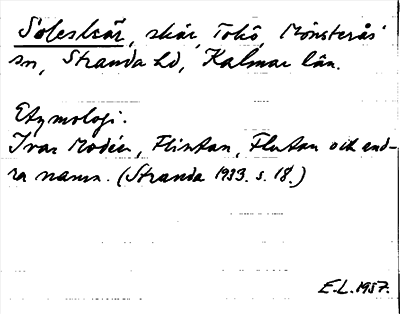 Soleskär, skär, Tokö, Mönsterås
sn, Stranda hd, Kalmar län.
Etymologi.
Ivar Modéer, Flintan, Flutan och and-
ra namn. (Stranda 1933. s. 18.)
E.L. 1957.